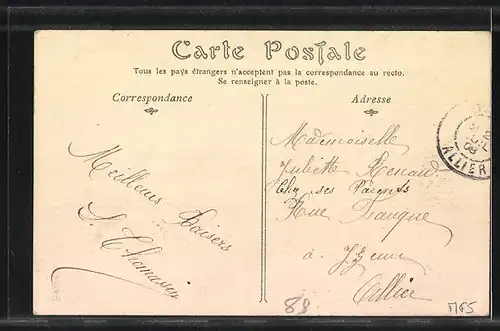 Carte Postale
Tous les pays étrangers n'acceptent pas la correspondance au recto.
Se renseigner à la poste.
Correspondance
Adresse
Meilleurs Baisers
S. Thomassin
Mademoiselle
Juliette Renaud
Chez ses Parents
Rue
à Yzeure
Allier
ALLIER
88